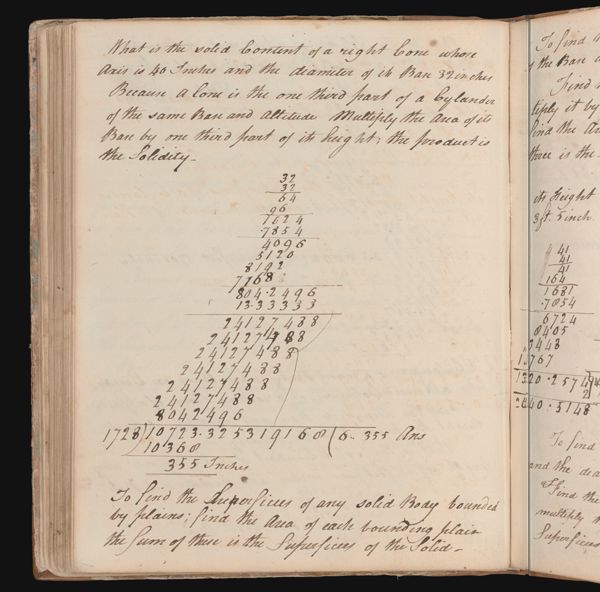 What is the solid Content of a right Cone whose
Axis is 40 Inches and the diameter of its Base 32 inches
Because a Cone is the one third part of a Cylander
of the same Base and Altitude Multiply the Area of its
Base by one third part of its height; the product is
the Solidity-
32
32
64
96
1024
.7854
4096
5120
8192
7168
804.2496
13.33333
24127488
24127488
24127488
24127488
24127488
24127488
8042496
1728) 10723.3253191680 (6.. 355 Ans
10368
355 Inches
To find the Superficies of any solid Body bounded
by plains; find the Area of each bounding plain
the Sum of these is the Superficies of the Solid-
To find
of the Base
Find
tiply it by
find the
three is the
its height
3 ft. 5 inch
41
41
41
164
1681
.7854
6724
8405
13448
11767
1320.2574
2
2640.5148
To find
and the dia
find the
multiply
Superficies